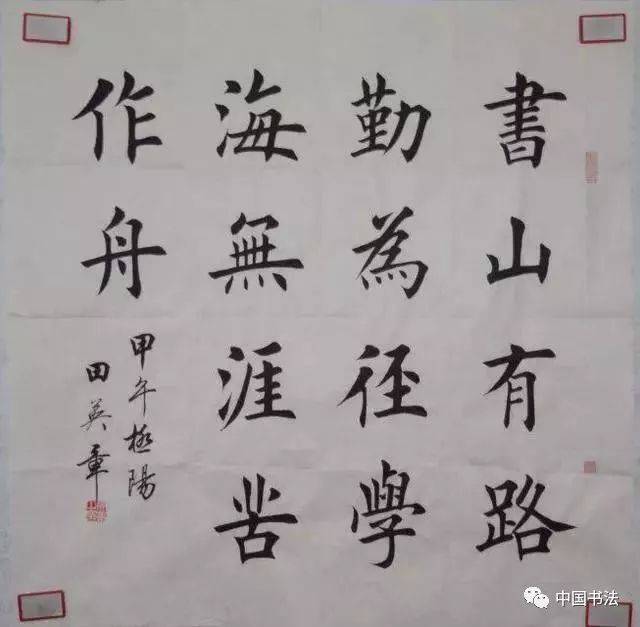 書山有路
勤為徑學
海無涯苦
作舟
甲午極陽
田英章
中国书法